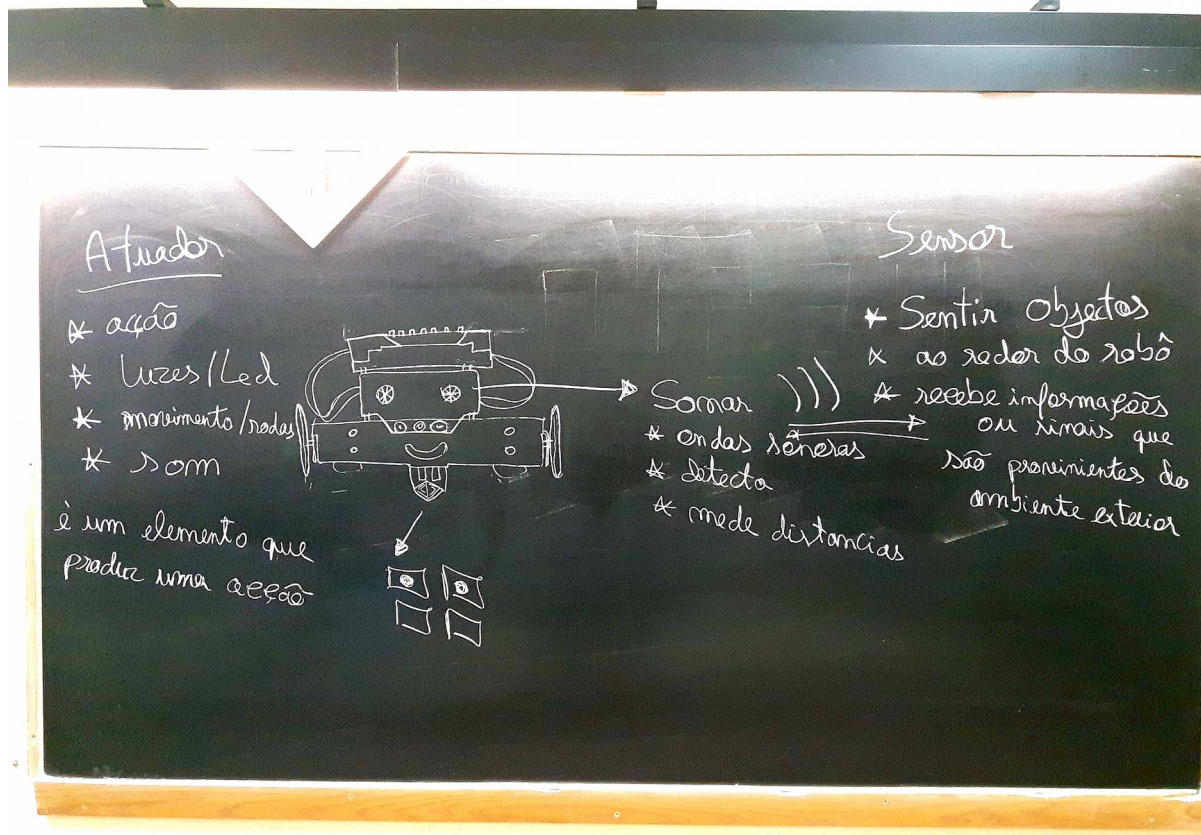 Atuador
* acção
* Luzes/Led
* movimento/rodas
* som
è um elemento que
produz uma acção
Sonar
* ondas sonoras
* detecta
* mede distancias
Sensor
* Sentir objectos
* ao redor do robô
* recebe informações
ou sinais que
são proveinientes do
ambiente exterior